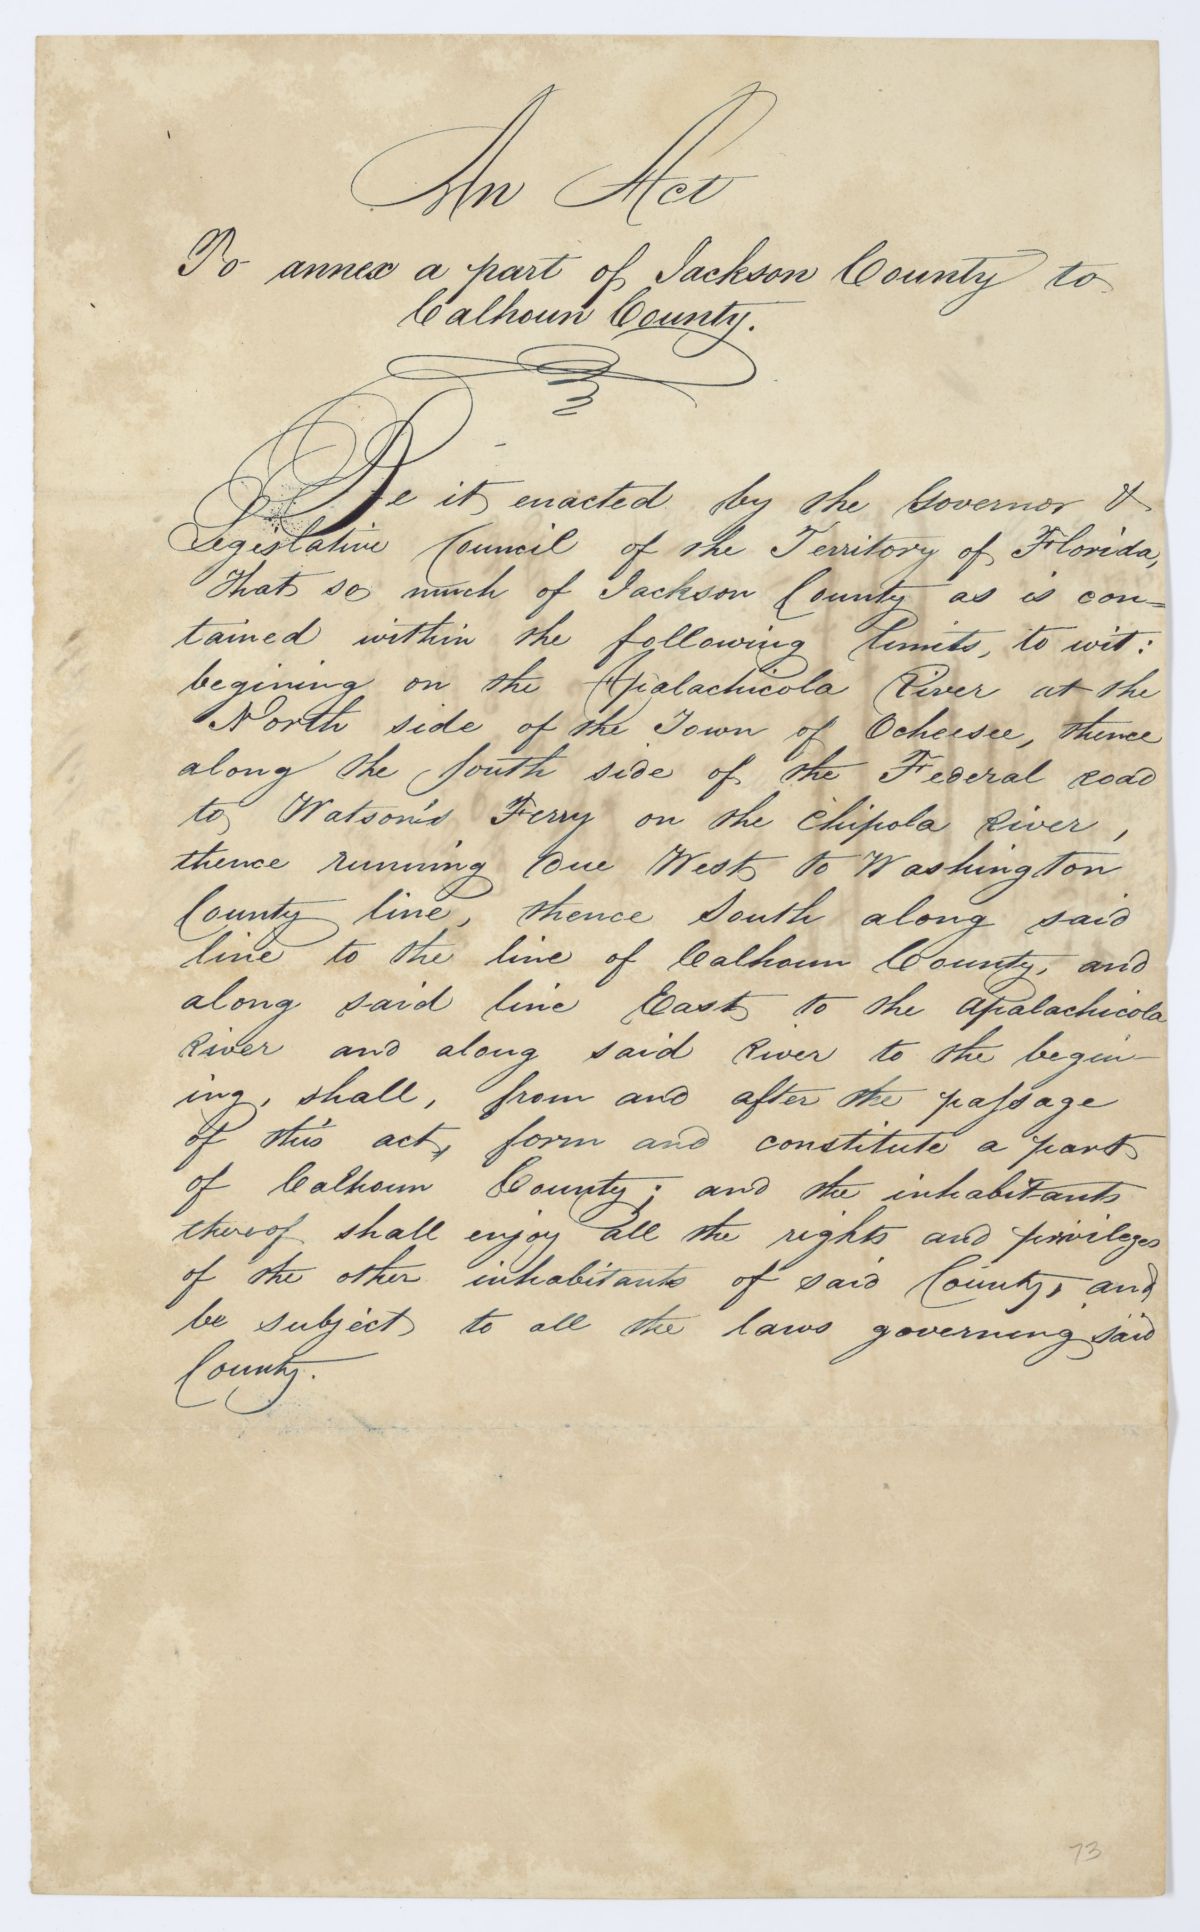 An Act
To annex a part of Jackson County to
Calhoun County.
Be it enacted by the Governor &
Legislative Council of the Territory of Florida,
That so much of Jackson County as is con=
tained within the following limits, to wit:
begining on the Apalachicola River at the
North side of the Town of Ocheesee, thence
along the South side of the Federal road
to Watson's Ferry on the Chipola River,
thence running due West to Washington
County line, thence South along said
line to the line of Calhoun County, and
along said line East to the Apalachicola
River and along said River to the begin-
ing, shall, from and after the passage
of this act, form and constitute a part
of Calhoun County; and the inhabitants
thereof shall enjoy all the rights and privileges
of the other inhabitants of said County, and
be subject to all the laws governing said
County.
73